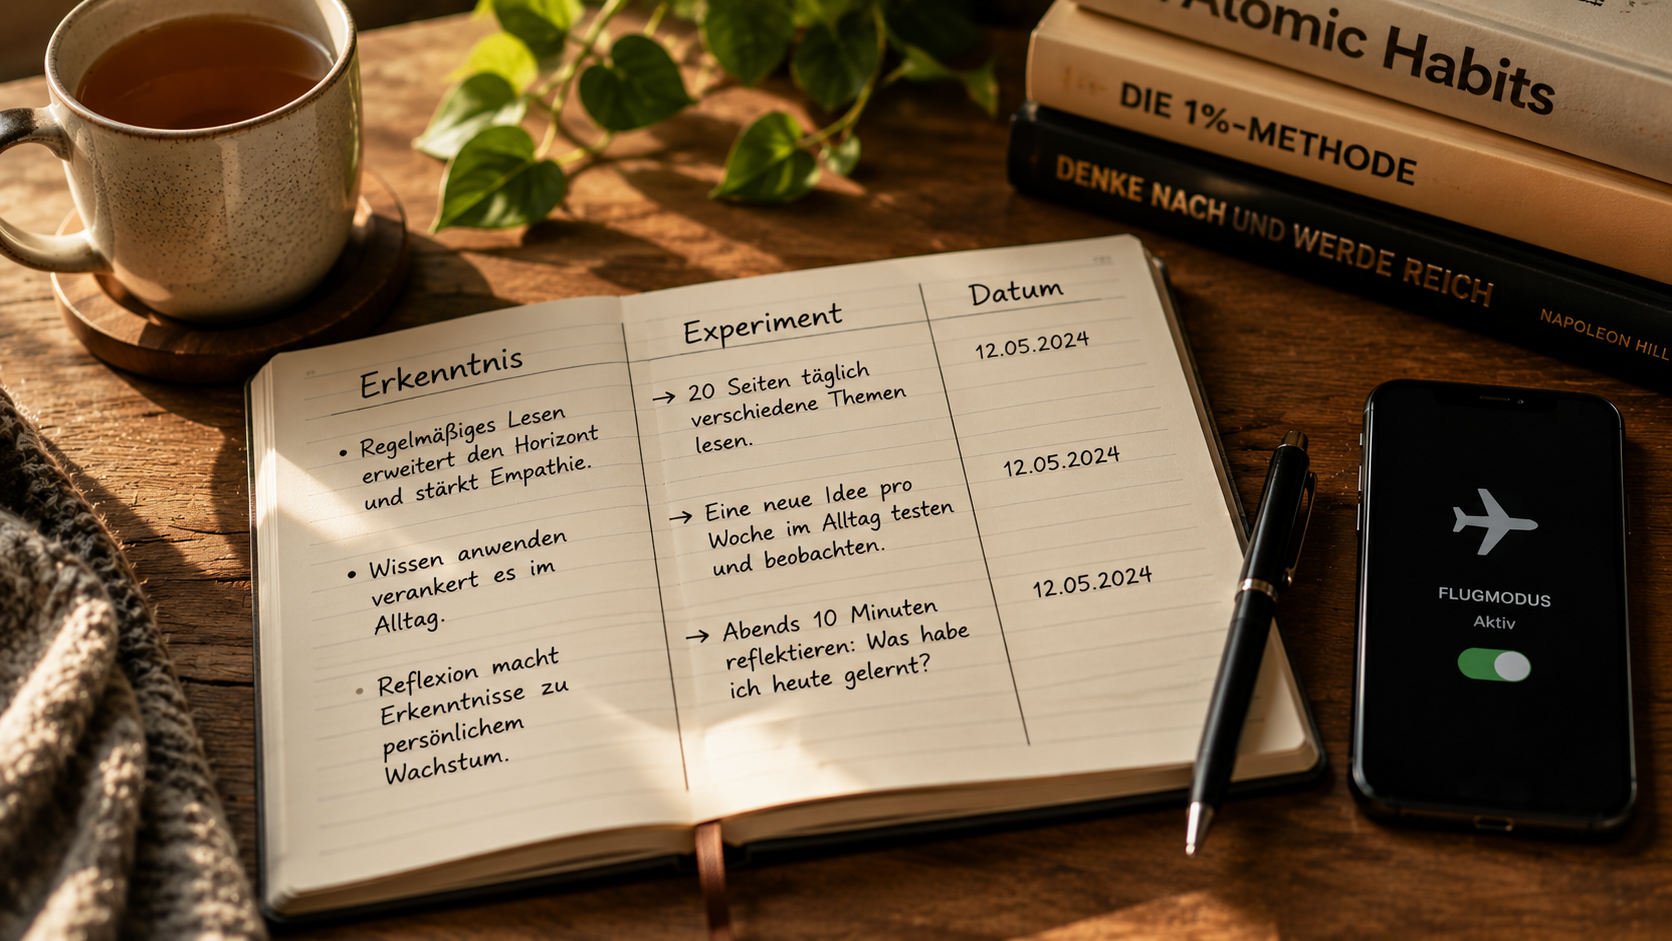 Atomic Habits
DIE 1%-METHODE
DENKE NACH UND WERDE REICH
NAPOLEON HILL
Erkenntnis
• Regelmäßiges Lesen
erweitert den Horizont
und stärkt Empathie.
• Wissen anwenden
verankert es im
Alltag.
• Reflexion macht
Erkenntnisse zu
persönlichem
Wachstum.
Experiment
→ 20 Seiten täglich
verschiedene Themen
lesen.
→ Eine neue Idee pro
Woche im Alltag testen
und beobachten.
→ Abends 10 Minuten
reflektieren: Was habe
ich heute gelernt?
Datum
12.05.2024
12.05.2024
12.05.2024
FLUGMODUS
Aktiv